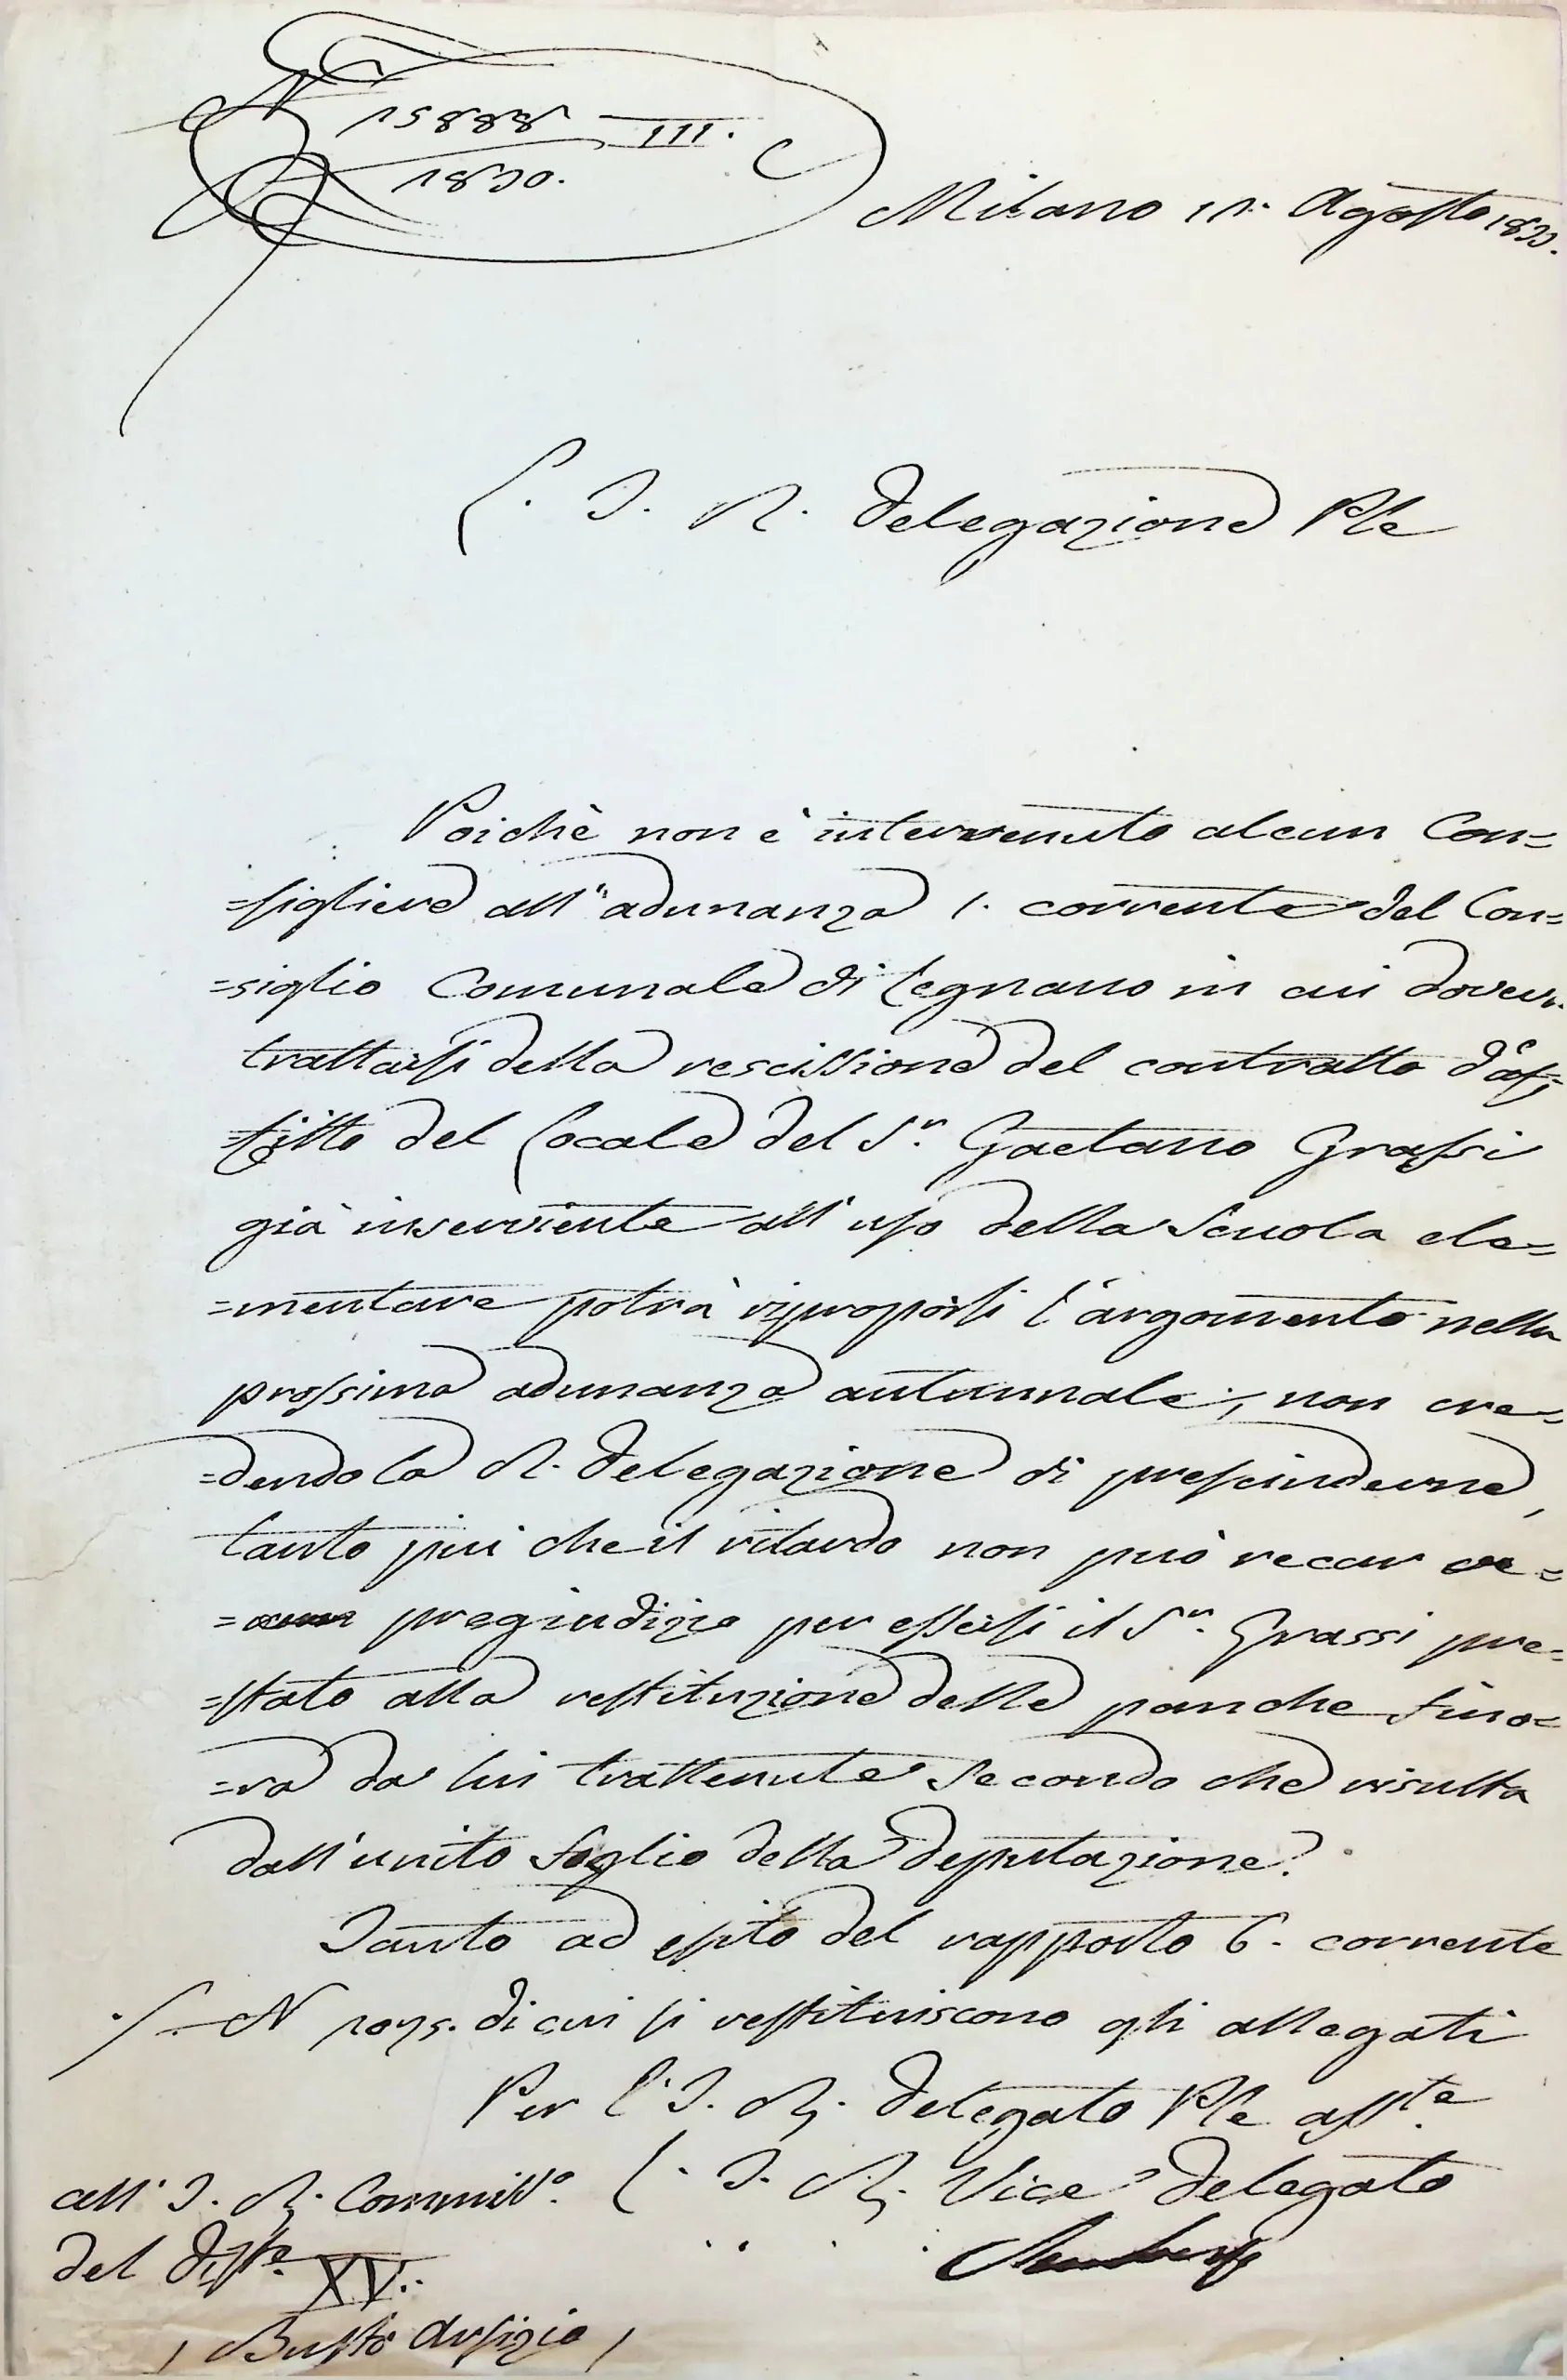 N 15888 III.
1830.
Milano 12. Agosto 1830.
L. I. R. Delegazione Ple
Poichè non è intervenuto alcun Con=
=sigliere all'adunanza 1. corrente del Con=
=siglio Comunale di Legnano in cui doveva
trattarsi della rescissione del contratto d'af=
=fitto del Locale del Sr. Gaetano Grassi
già inserviente all'uso della Scuola ele=
=mentare potrà riproporsi l'argomento nella
prossima adunanza autunnale, non cre=
=dendo la R. Delegazione di prescinderne,
tanto più che il ritardo non può recar
pregiudizio per essersi il Sr. Grassi pre=
=stato alla restituzione delle panche fino=
=ra da lui trattenute secondo che risulta
dall'unito foglio della Deputazione.
Tanto ad esito del rapporto 6. corrente
N di cui si restituiscono gli allegati
Per l'I. R. Delegato Ple asste
L. I. R. Vice Delegato
all'I. R. Commisso.
del Disto. XV.
Busto Arsizio